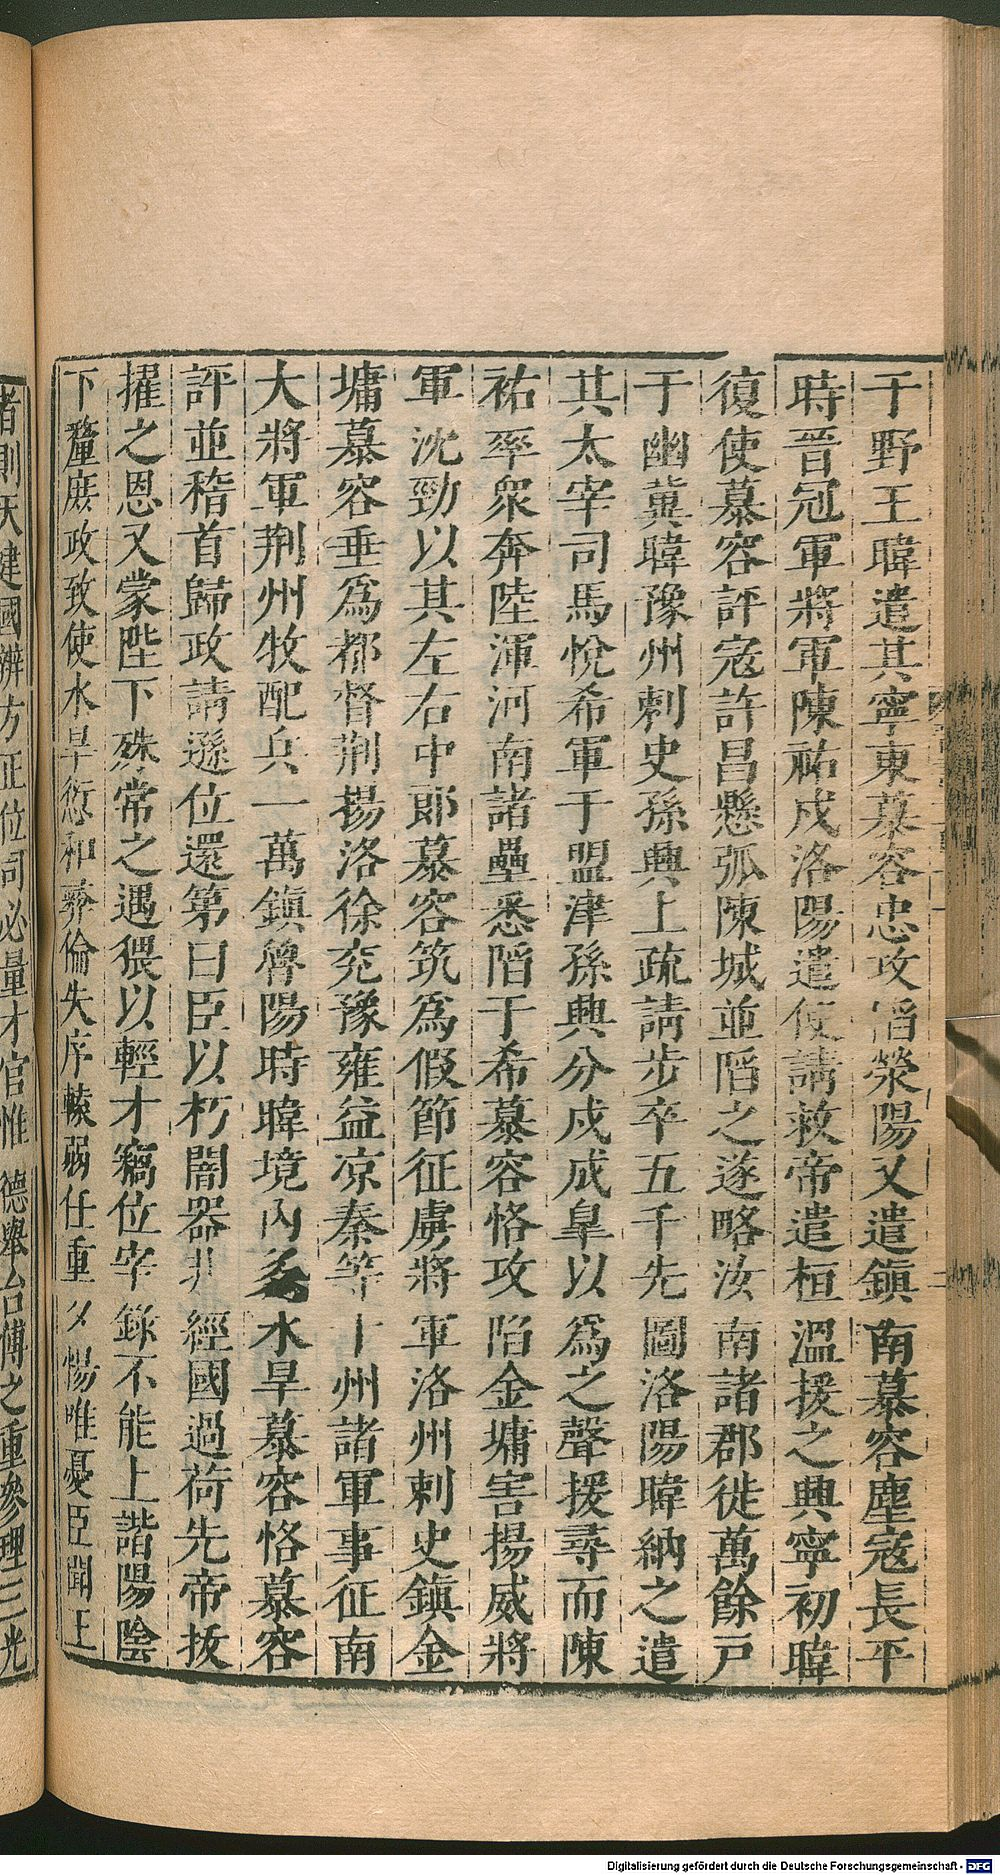 于野王暐遣其寧東慕容忠攻䧟滎陽又遣鎮南慕容塵寇長平
時晉冠軍將軍陳祐戍洛陽遣使請救帝遣桓溫援之興寧初暐
復使慕容評寇許昌懸弧陳城並䧟之遂略汝南諸郡徙萬餘戸
于幽冀暐豫州刺史孫興上疏請步卒五千先圖洛陽暐納之遣
其太宰司馬悅希軍于盟津孫興分戍成皐以為之聲援尋而陳
祐率衆奔陸渾河南諸壘悉䧟于希慕容恪攻陷金墉害揚威將
軍沈勁以其左右中郎慕容筑為假節征虜將軍洛州刺史鎮金
墉慕容垂為都督荆揚洛徐兖豫雍益凉秦等十州諸軍事征南
大將軍荆州牧配兵一萬鎮魯陽時暐境內多水旱慕容恪慕容
評並稽首歸政請遜位還第曰臣以朽闇器非經國過荷先帝拔
擢之恩又蒙陛下殊常之遇猥以輕才竊位宰錄不能上諧陰陽
下釐庶政致使水旱愆和彝倫失序轅弱任重夕惕唯憂臣聞王
者則天建國辨方正位司必量才官惟德舉台傅之重參理三光
Digitalisierung gefördert durch die Deutsche Forschungsgemeinschaft - DFG